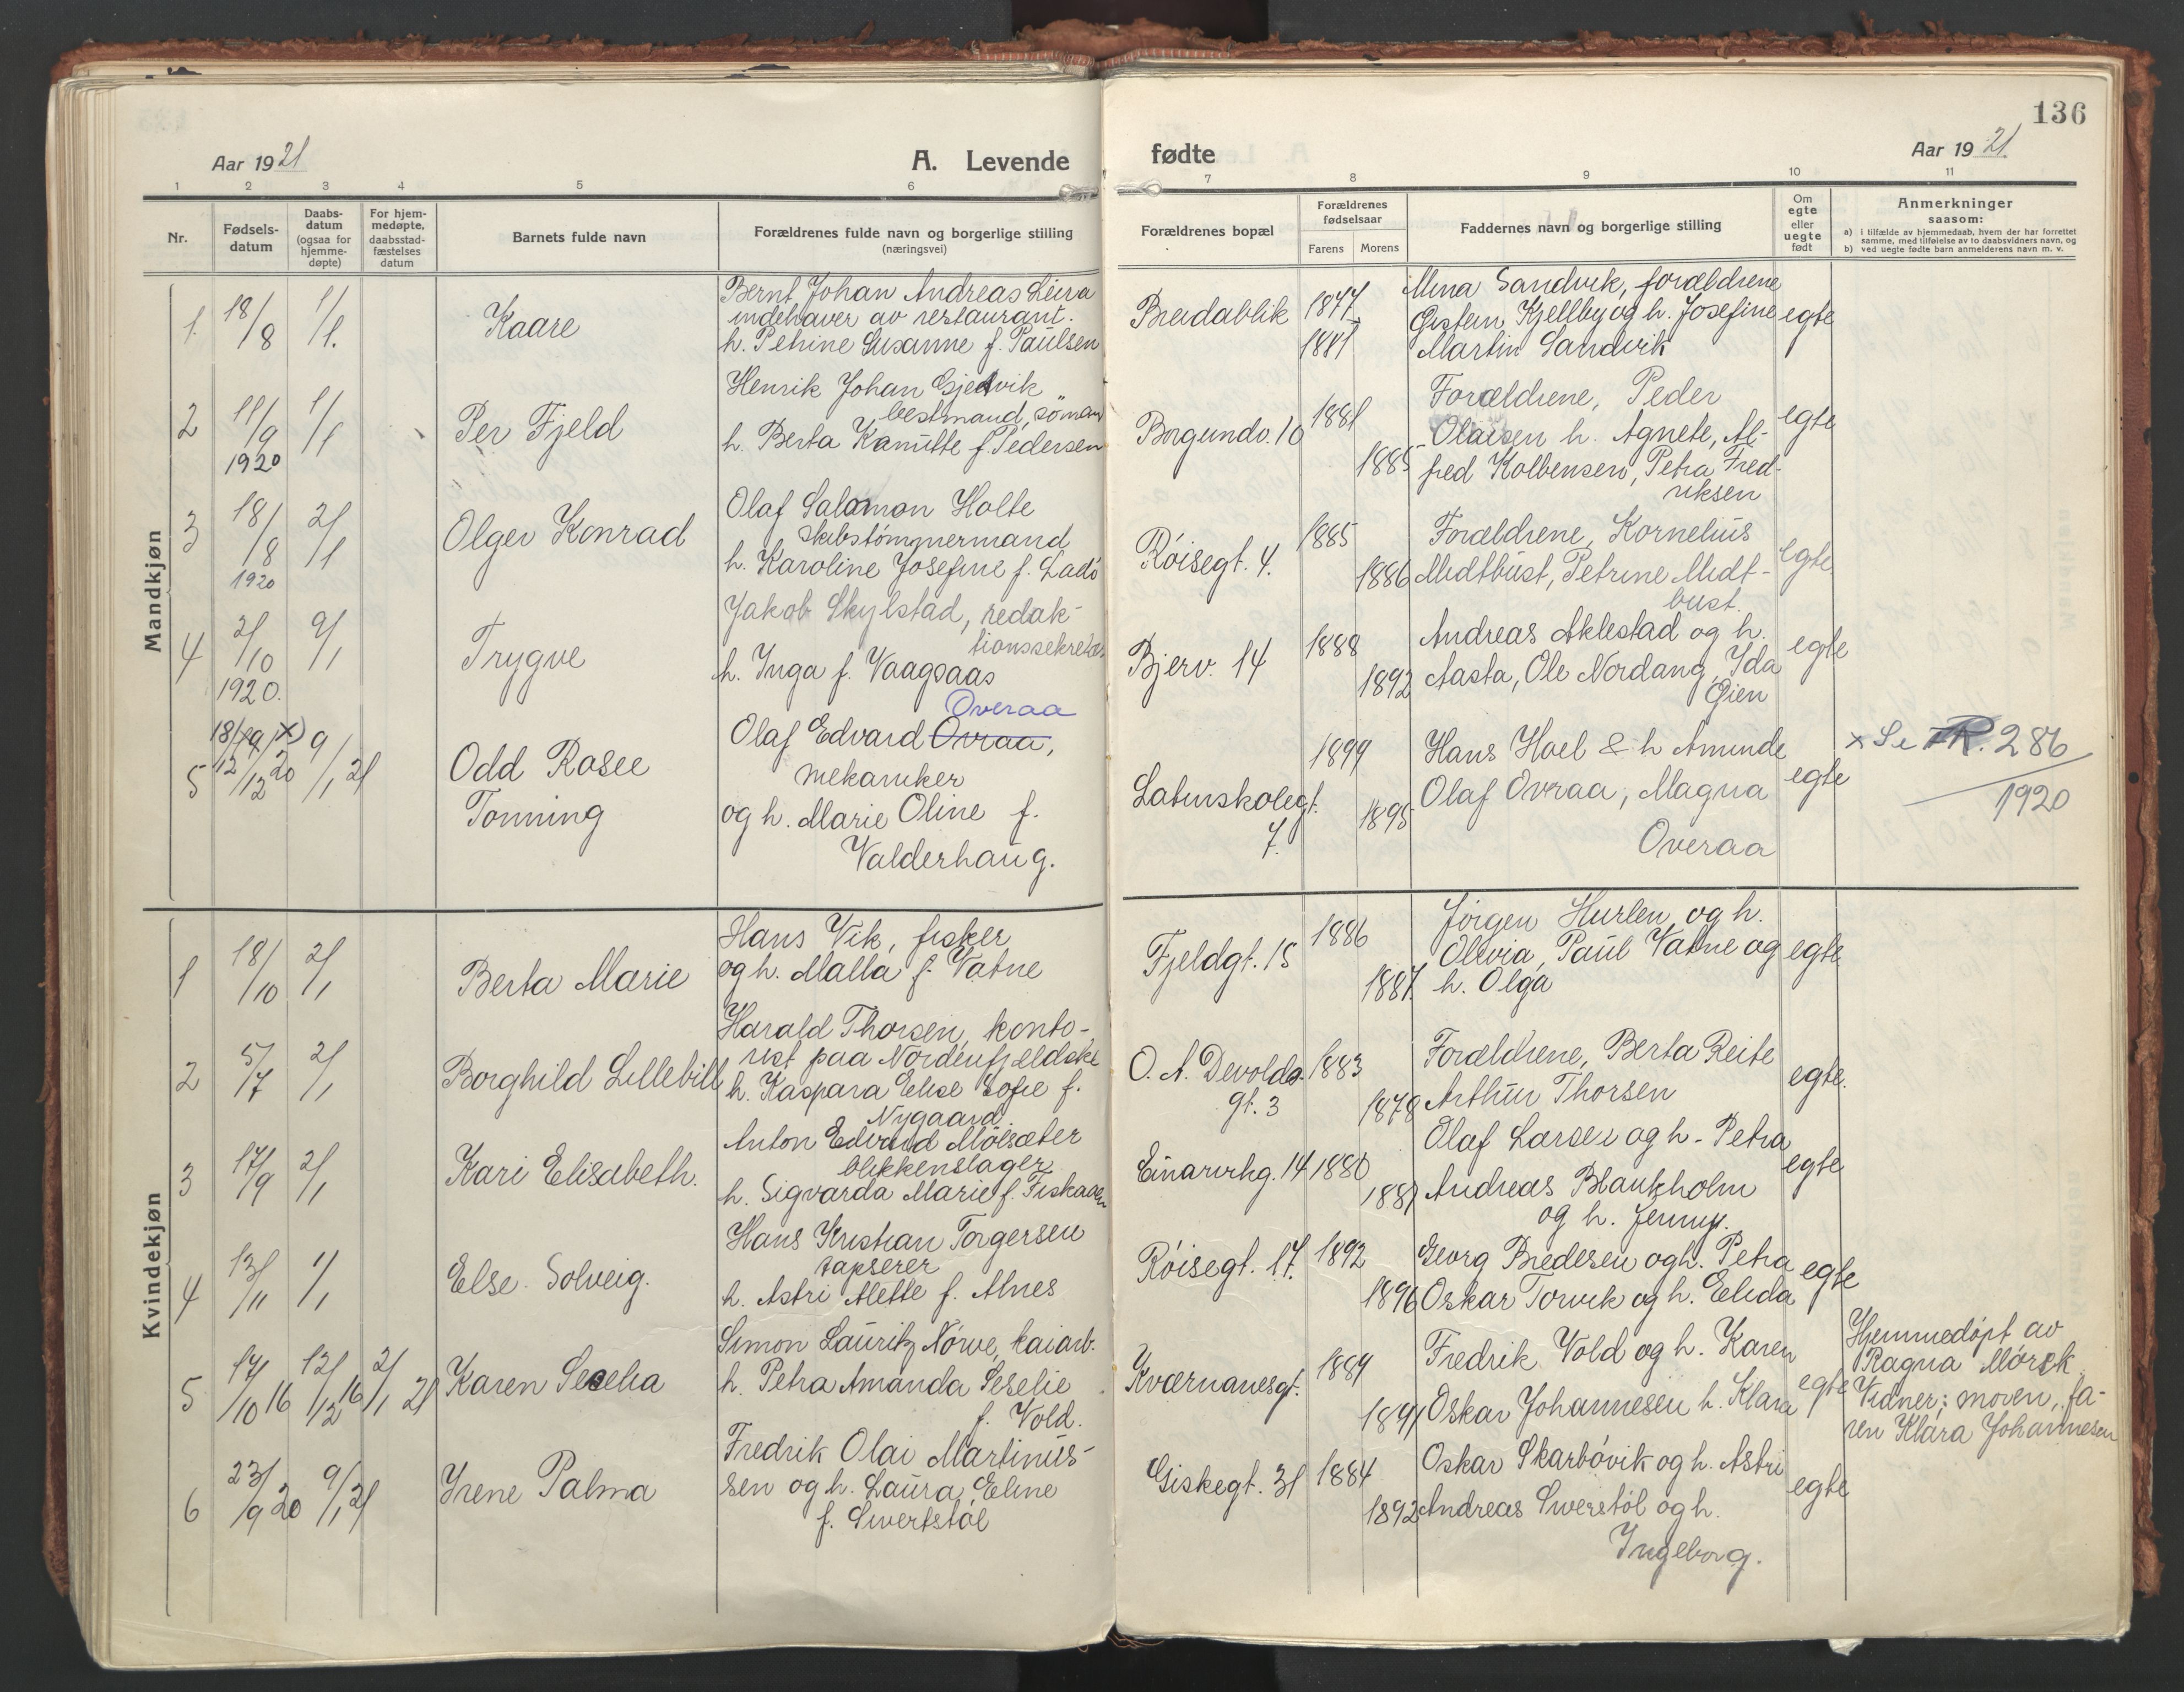 136
Aar 1921
A. Levende
fødte
Aar 1921
1 2 3 4 5 6
7 8 9 10 11
Nr.
Fødsels-
datum
Daabs-
datum
(ogsaa for
hjemme-
døpte)
For hjem-
medøpte,
daabsstad-
fæstelses
datum
Barnets fulde navn
Forældrenes fulde navn og borgerlige stilling
(næringsvei)
Forældrenes bopæl
Forældrenes
fødselsaar
Farens Morens
Faddernes navn og borgerlige stilling
Om
egte
eller
uegte
født
Anmerkninger
saasom:
a) i tilfælde av hjemmedaab, hvem der har forrettet
samme, med tilføielse av to daabsvidners navn, og
b) ved uegte fødte barn anmelderens navn m. v.
Mandkjøn
1. 18/8 1/1.
Kaare
Bernt Johan Andreas Leira
indehaver av restaurant.
h. Petrine Susanne f. Paulsen
Breidablik
1877
1881
Mina Sandvik, forældrene
Øistein Kjellby og h. Josefine
Martin Sandvik
egte
2 11/9 1/1
1920
Per Fjeld
Henrik Johan Gjedvik
bestmand, sømand
h. Berta Kanutte f. Pedersen
Borgundv. 10
1881
1885
Forældrene, Peder
Olaisen h. Agnete, Al-
fred Kolbensen, Petra Fred-
riksen
egte
3 18/8 2/1
1920
Olger Konrad
Olaf Salomon Holte
Skibstømmermand
h. Karoline Josefine f. Ladö
Røisegt. 4.
1885
1886
Forældrene, Kornelius
Midtbust, Petrine Midt-
bust.
egte
4 2/10 9/1
1920.
Trygve
Jakob Skylstad, redak-
tionssekretær
h. Inga f. Vaagsaas
Bjerv. 14
1888
1892
Andreas Aklestad og h.
Aasta, Ole Nordang, Ida
Øien
egte
5 18/12 19/12 20 x) 9/1 21
Odd Rosee
Tonning
Overaa
Olaf Edvard Ovraa,
mekaniker
og h. Marie Oline f.
Valderhaug.
Latinskolegt.
7.
1899
1895
Hans Hoel & h Aminde
Olaf Ovraa, Magna
Overaa
egte
x Se R. 286
1920
Kvindekjøn
1 18/10 2/1
Berta Marie
Hans Vik, fisker
og h. Malla f. Vatne
Fjeldgt. 15
1886
1887.
Jørgen Hurlen og h.
Olivia, Paul Vatne og
h. Olga
egte
2 5/7 2/1
Borghild Lillebill
Harald Thorsen, konto-
rist paa Nordenfjeldske
h. Kaspara Elise Sofie f.
Nygaard.
O. A. Devolds.
gt. 3
1883
1878
Forældrene, Berta Reite
Arthur Thorsen
egte.
3 17/9 2/1
Kari Elisabeth.
Anton Edvard Molsæter
blikkenslager
h. Sigvarda Marie f. Fiskaaen
Einarvikg. 14
1880
1881
Olaf Larsen og h. Petra
Andreas Blankholm
og h. Jenny.
egte
4 13/11 1/1
Else Solveig.
Hans Kristian Torgersen
tapserer
h. Astri Alette f. Alnes
Røisegt. 17.
1892
1896
Georg Bredesen og h. Petra
Oskar Torvik og h. Elida
egte
5 17/10 16 12/12 16 2/1 21
Karen Seselia
Simon Lauritz Nørve, kaiarb.
h. Petra Amanda Seselie
f. Vold.
Kværnanesgt.
1889
1891
Fredrik Vold og h. Karen
Oskar Johannesen h. Klara
egte
Hjemmedøpt av
Ragna Mørck
Vidner: moren, fa-
ren Klara Johannesen
6 23/9 20 9/1 21
Irene Palma
Fredrik Olai Martinus-
sen og h. Laura Eline
f. Sivertstøl
Giskegt. 31
1884
1892
Oskar Skarbøvik og h. Astri
Andreas Siverstøl og h.
Ingeborg.
egte